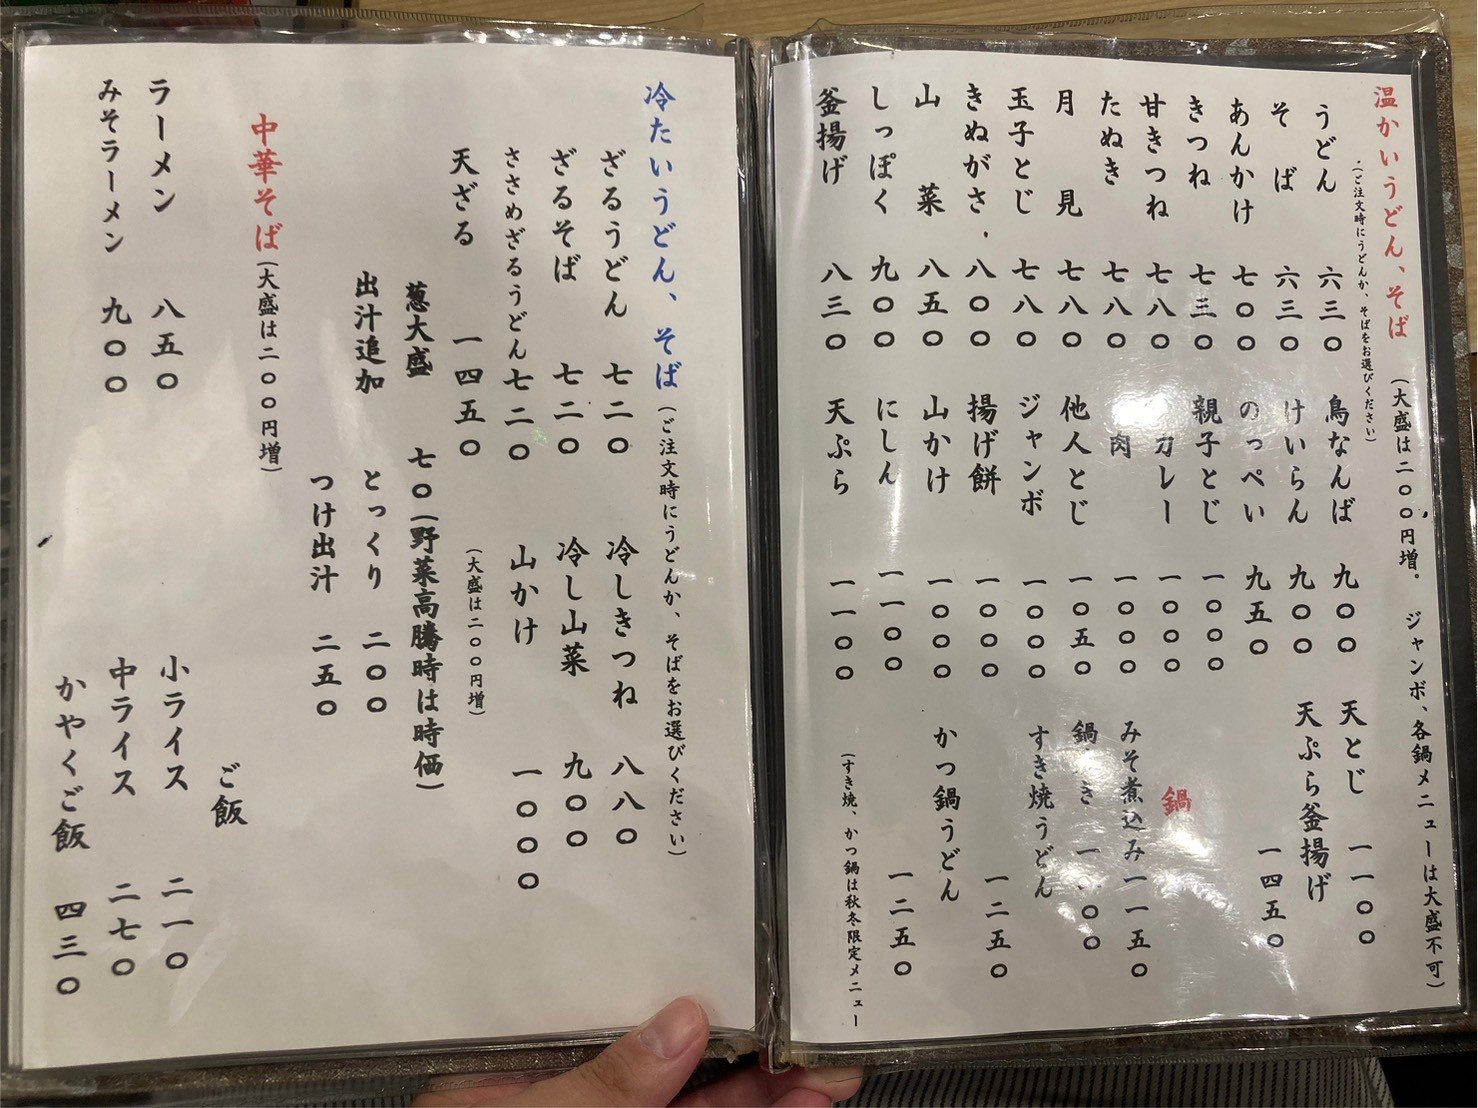 温かいうどん、そば（大盛は二〇〇円増。ジャンボ、各鍋メニューは大盛不可）
（ご注文時にうどんか、そばをお選びください）
うどん 六三〇
そば 六三〇
あんかけ 七〇〇
きつね 七三〇
甘きつね 七八〇
たぬき 七八〇
月見 七八〇
玉子とじ 七八〇
きぬがさ 八〇〇
山菜 八五〇
しっぽく 九〇〇
釜揚げ 八三〇
鳥なんば 九〇〇
けいらん 九〇〇
のっぺい 九五〇
親子とじ 一〇〇〇
カレー 一〇〇〇
肉 一〇〇〇
他人とじ 一〇五〇
ジャンボ 一〇〇〇
揚げ餅 一〇〇〇
山かけ 一〇〇〇
にしん 一一〇〇
天ぷら 一一〇〇
天とじ 一一〇〇
天ぷら釜揚げ 一四五〇
鍋
みそ煮込み 一一五〇
すき焼うどん 一二五〇
かつ鍋うどん 一二五〇
（すき焼、かつ鍋は秋冬限定メニュー
冷たいうどん、そば（ご注文時にうどんか、そばをお選びください）
ざるうどん 七二〇
ざるそば 七二〇
ささめざるうどん 七二〇
天ざる 一四五〇
冷しきつね 八八〇
冷し山菜 九〇〇
山かけ 一〇〇〇
（大盛は二〇〇円増）
葱大盛 七〇（野菜高騰時は時価）
出汁追加 とっくり 二〇〇
つけ出汁 二五〇
中華そば（大盛は二〇〇円増）
ラーメン 八五〇
みそラーメン 九〇〇
ご飯
小ライス 二一〇
中ライス 二七〇
かやくご飯 四三〇